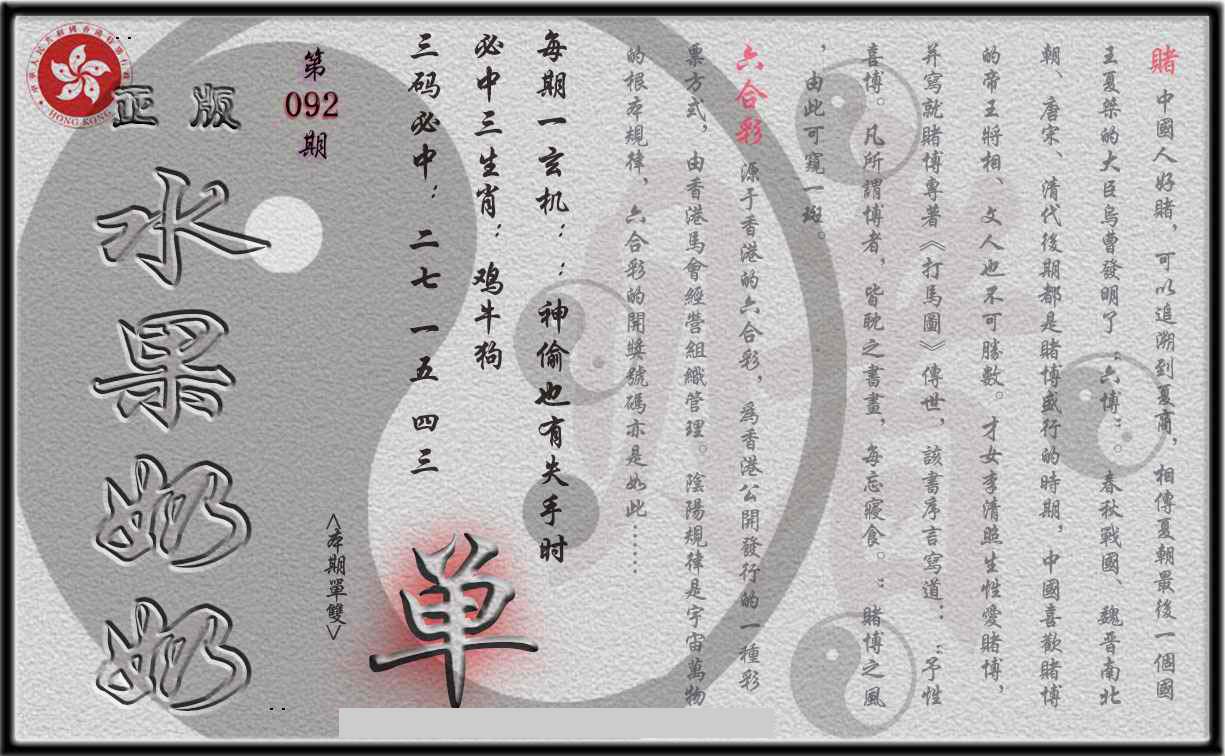 賭 中國人好賭，可以追溯到夏商，相傳夏朝最後一個國
王夏桀的大臣烏曹發明了“六博”。春秋戰國、魏晋南北
朝、唐宋、清代後期都是賭博盛行的時期，中國喜歡賭博
的帝王將相、文人也不可勝數。才女李清照生性愛賭博，
并寫就賭博專著《打馬圖》傳世，該書序言寫道：“予性
喜博。凡所謂博者，皆耽之書畫，每忘寢食。”賭博之風
，由此可窺一斑。
六合彩 源于香港的六合彩，為香港公開發行的一種彩
票方式，由香港馬會經營組織管理。陰陽規律是宇宙萬物
的根本規律，六合彩的開獎號碼亦是如此……
每期一玄机：：神偷也有失手时
必中三生肖：鸡牛狗
三码必中：二七 一五 四三
单
<本期單雙>
第
092
期
正版
水果奶奶
HONG KONG